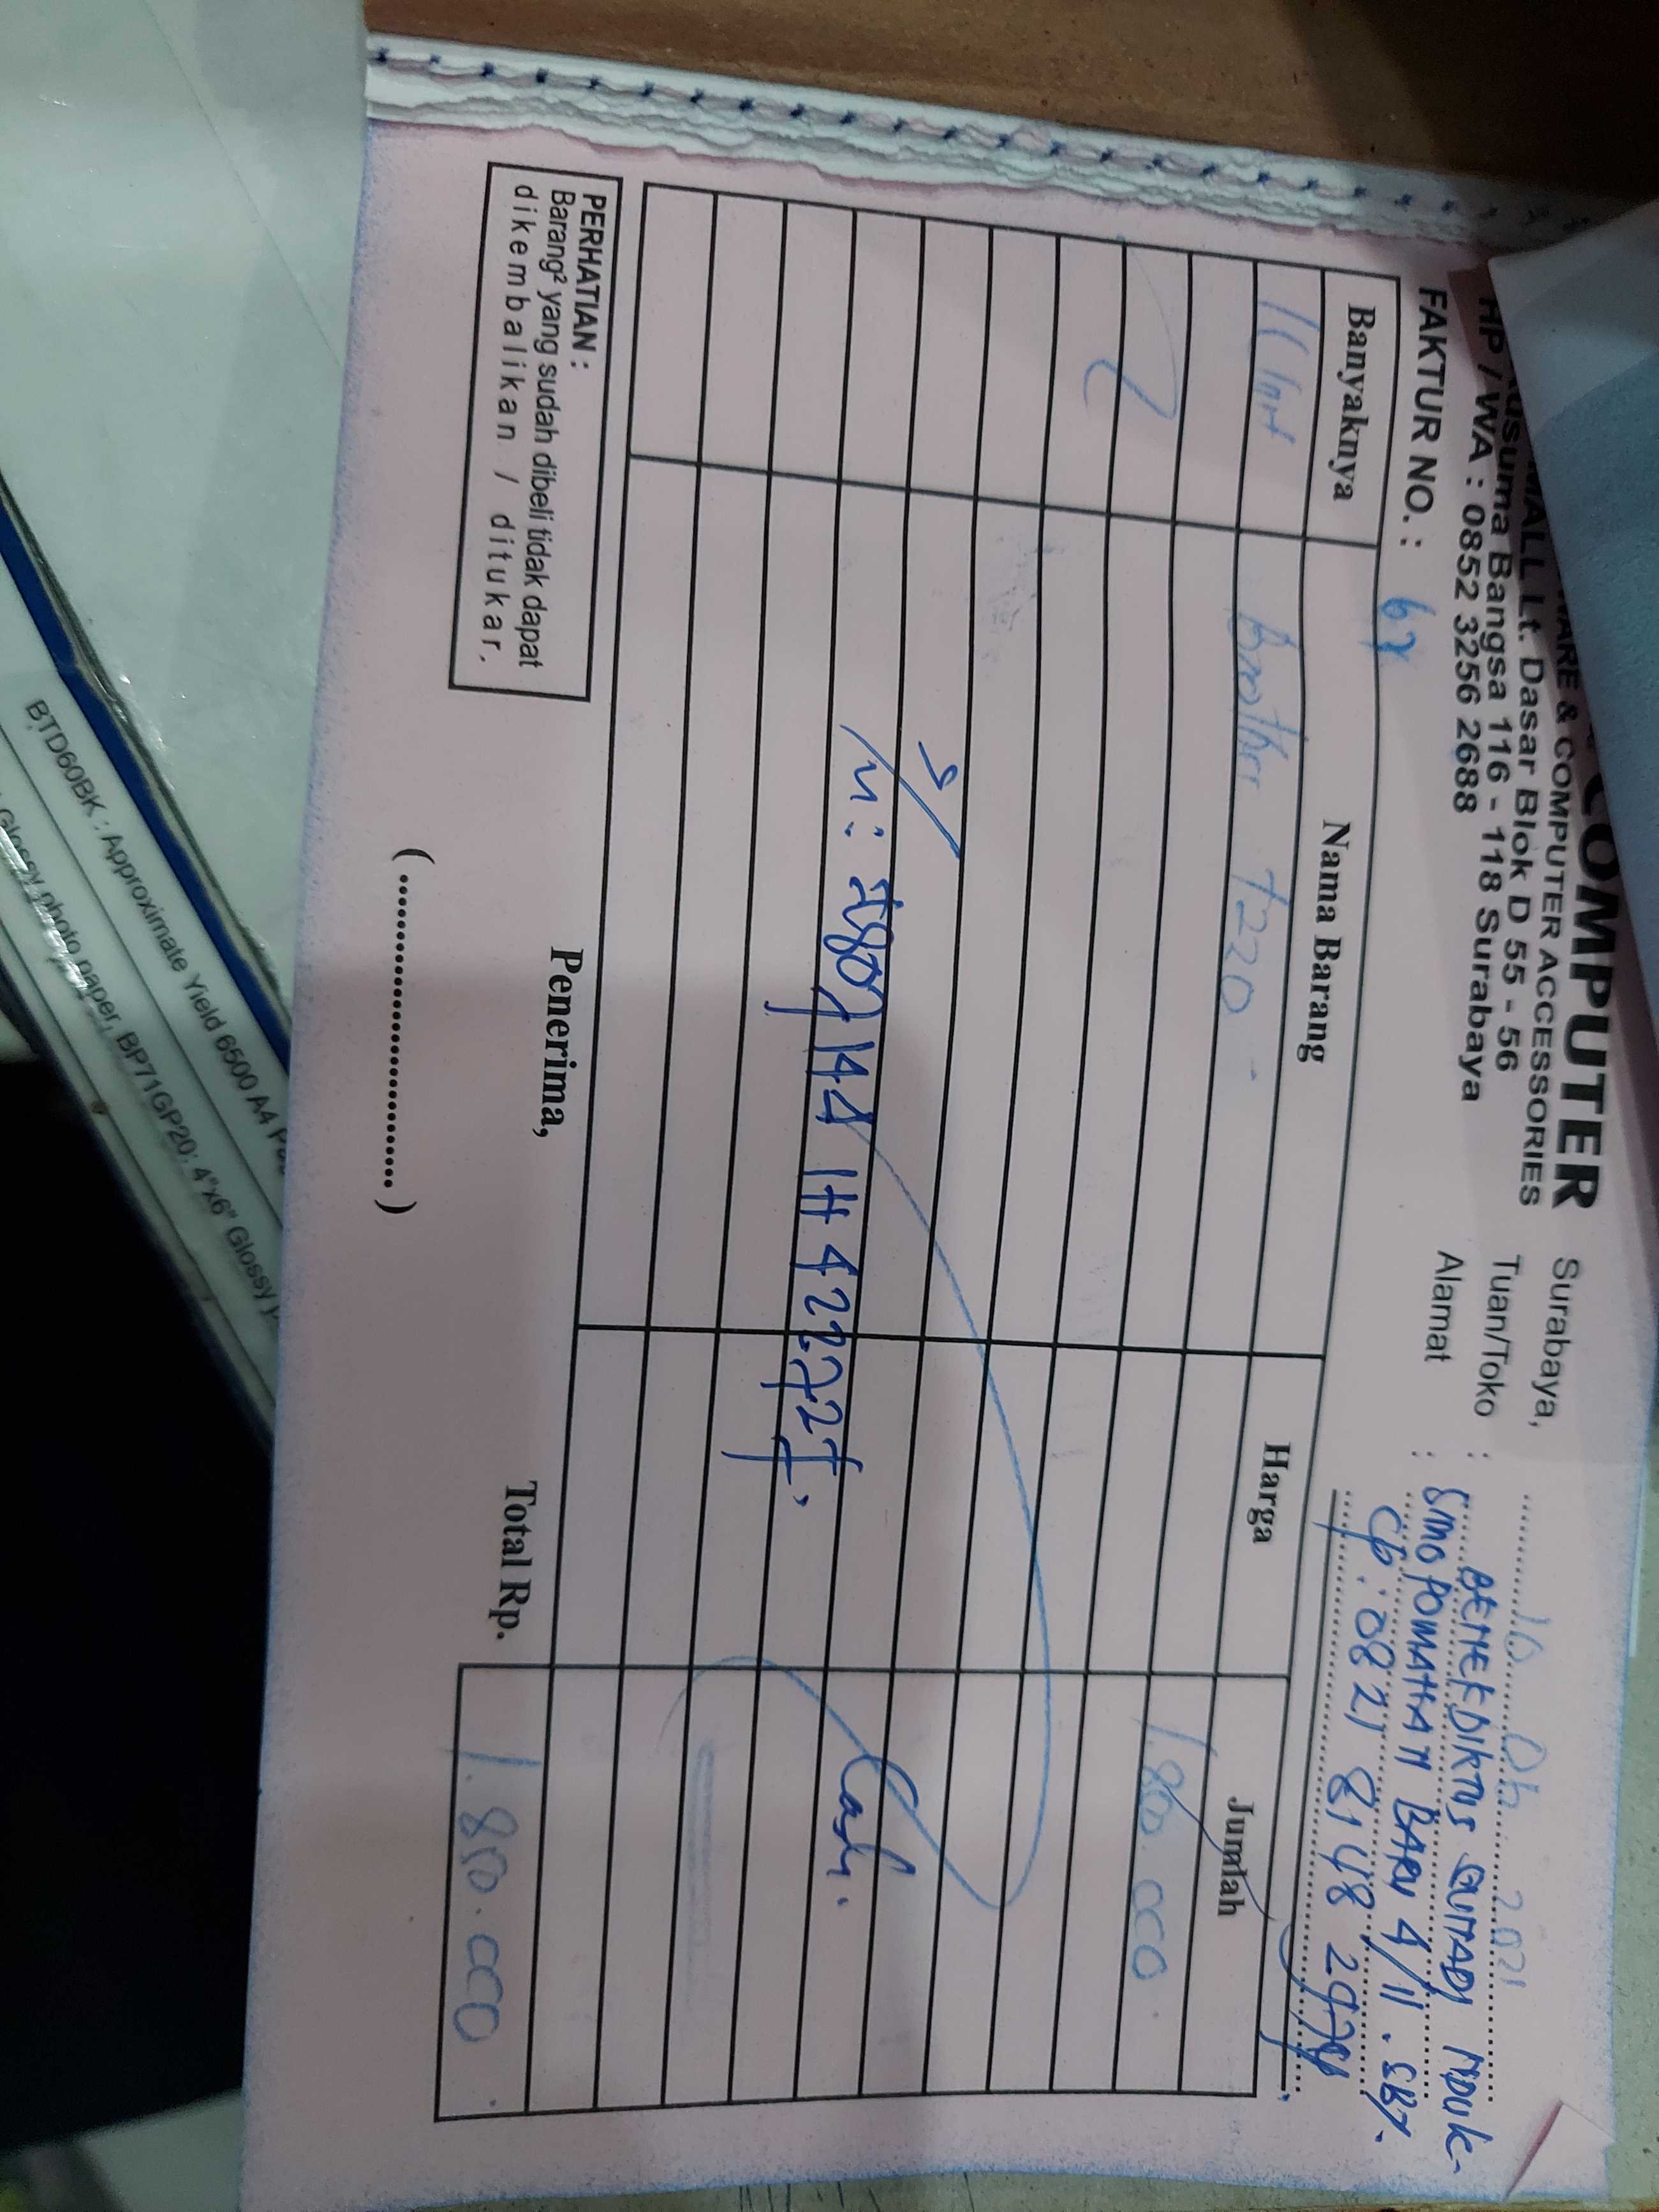 COMPUTER
& COMPUTER ACCESSORIES
MALL Lt. Dasar Blok D 55 - 56
Kusuma Bangsa 116 - 118 Surabaya
HP / WA : 0852 3256 2688
FAKTUR NO. :
Surabaya, 10 Okt 2021
Tuan/Toko :
Alamat : BARU 4/11 . SBY.
Cp : 0821 8148
Banyaknya Nama Barang Harga Jumlah
1 Unit Brother T220 1.850.000
S/N:
Cash.
Total Rp. 1.850.000
PERHATIAN :
Barang² yang sudah dibeli tidak dapat
dikembalikan / ditukar.
Penerima,
(..............................)
BTD60BK : Approximate Yield 6500 A4
Glossy photo paper, BP71GP20: 4"x6" Glossy